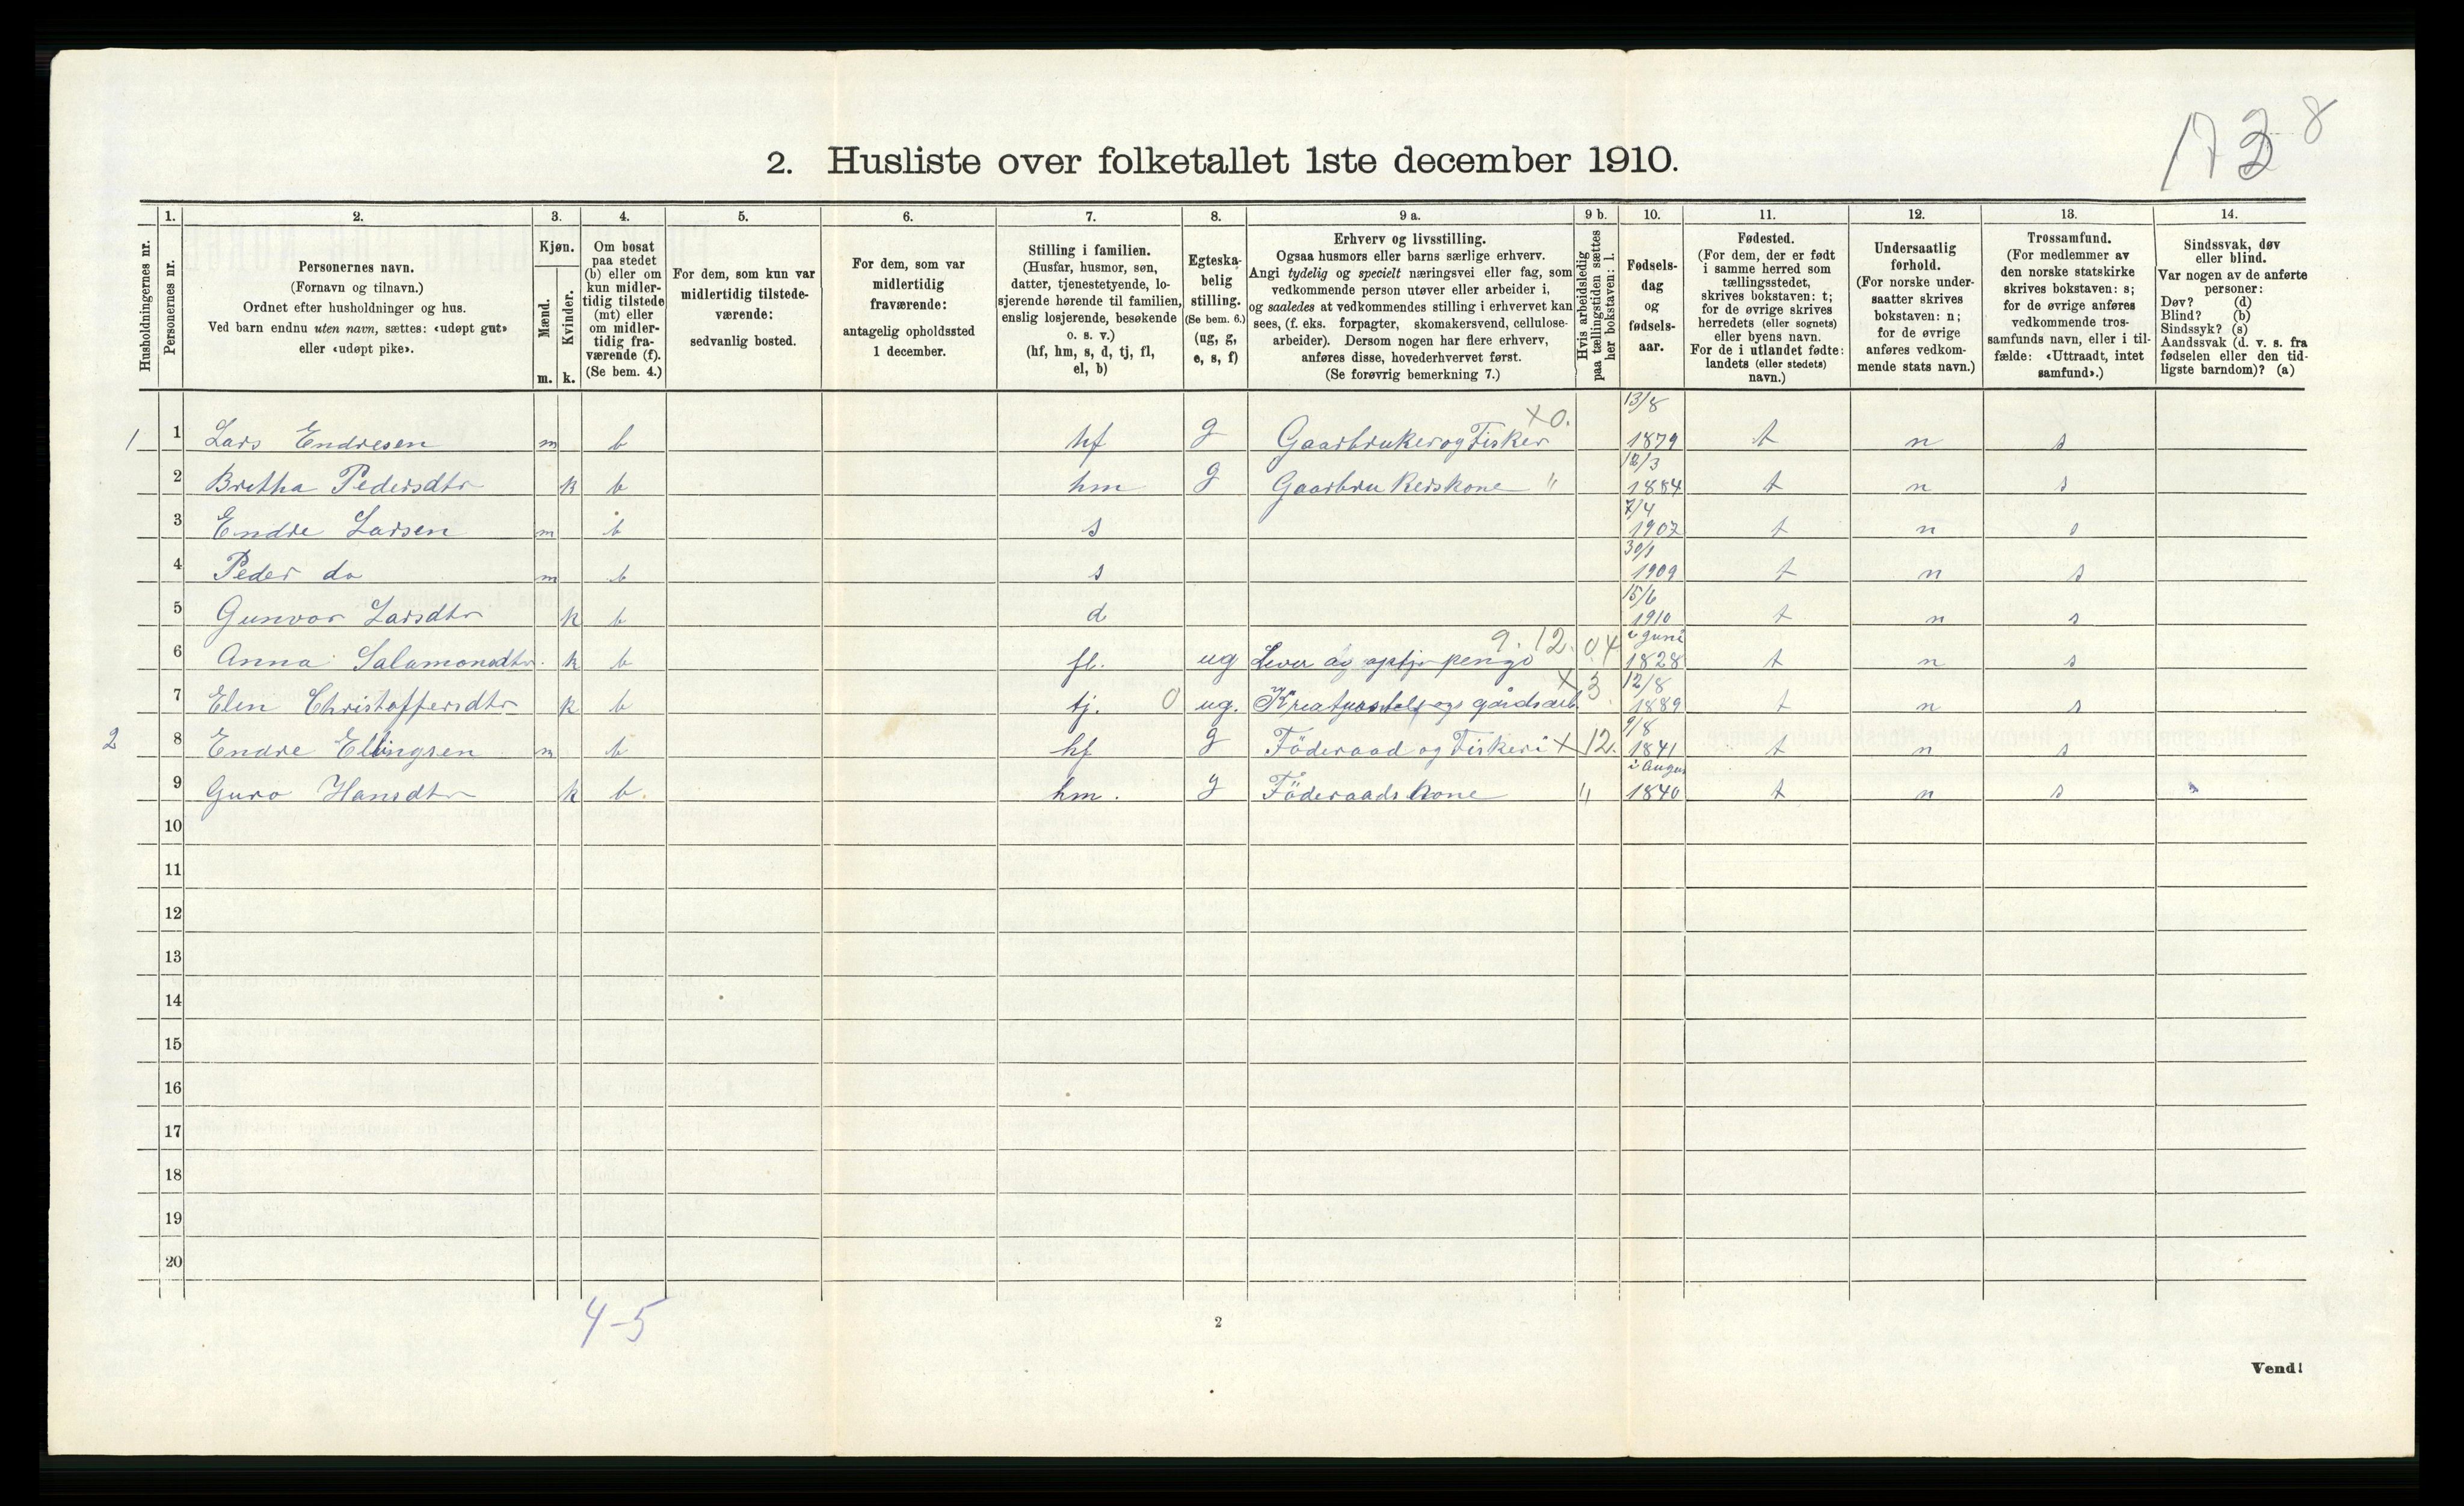 1738
2. Husliste over folketallet 1ste december 1910.
Husholdningernes nr.
1. Personernes nr.
2. Personernes navn. (Fornavn og tilnavn.) Ordnet efter husholdninger og hus. Ved barn endnu uten navn, sættes: «udøpt gut» eller «udøpt pike».
3. Kjøn. Mænd. m. Kvinder. k.
4. Om bosat paa stedet (b) eller om kun midlertidig tilstede (mt) eller om midlertidig fraværende (f). (Se bem. 4.)
5. For dem, som kun var midlertidig tilstedeværende: sedvanlig bosted.
6. For dem, som var midlertidig fraværende: antagelig opholdssted 1 december.
7. Stilling i familien. (Husfar, husmor, søn, datter, tjenestetyende, losjerende hørende til familien, enslig losjerende, besøkende o. s. v.) (hf, hm, s, d, tj, fl, el, b)
8. Egteskabelig stilling. (Se bem. 6.) (ug, g, e, s, f)
9 a. Erhverv og livsstilling. Ogsaa husmors eller barns særlige erhverv. Angi tydelig og specielt næringsvei eller fag, som vedkommende person utøver eller arbeider i, og saaledes at vedkommendes stilling i erhvervet kan sees, (f. eks. forpagter, skomakersvend, cellulosearbeider). Dersom nogen har flere erhverv, anføres disse, hovederhvervet først. (Se forøvrig bemerkning 7.)
9 b. Hvis arbeidsledig paa tællingstiden sættes her bokstaven: l.
10. Fødselsdag og fødselsaar.
11. Fødested. (For dem, der er født i samme herred som tællingsstedet, skrives bokstaven: t; for de øvrige skrives herredets (eller sognets) eller byens navn. For de i utlandet fødte: landets (eller stedets) navn.)
12. Undersaatlig forhold. (For norske undersaatter skrives bokstaven: n; for de øvrige anføres vedkommende stats navn.)
13. Trossamfund. (For medlemmer av den norske statskirke skrives bokstaven: s; for de øvrige anføres vedkommende trossamfunds navn, eller i tilfælde: «Uttraadt, intet samfund».)
14. Sindssvak, døv eller blind. Var nogen av de anførte personer: Døv? (d) Blind? (b) Sindssyk? (s) Aandssvak (d. v. s. fra fødselen eller den tidligste barndom)? (a)
1 1 Lars Endresen m b hf g Gaarbruker og Fisker x0. 13/8 1879 t n s
2 Bretha Pedersdtr k b hm g Gaarbrukerskone " 12/3 1884 t n s
3 Endre Larsen m b s 7/4 1907 t n s
4 Peder do m b s 30/1 1909 t n s
5 Gunvor Larsdtr k b d 15/6 1910 t n s
6 Anna Salamonsdtr. k b fl. ug Lever av optj. penge 9.12.04 i Juni 1828 t n s
7 Elen Christoffersdtr k b tj. 0 ug. Kreaturstel og gårdsarb. x3 12/8 1889 t n s
2 8 Endre Ellingsen m b hf g Föderaad og Fiskeri x 12. 9/8 1841 t n s
9 Guro Hansdtr k b. hm. g Föderaadskone " i August 1840 t n s
10
11
12
13
14
15
16
17
18
19
20
4-5
2
Vend!